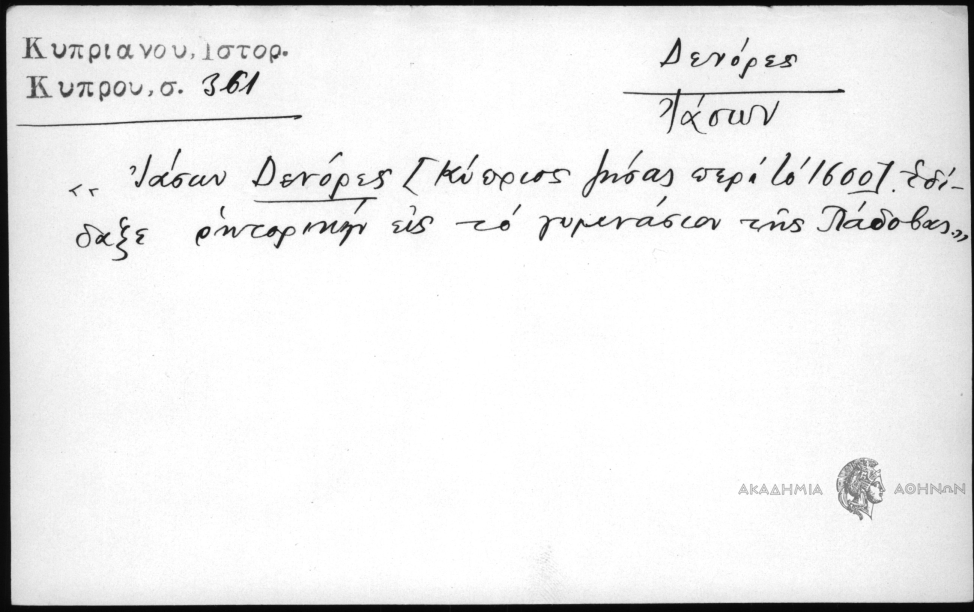 Κυπριανου, Ιστορ.
Κυπρου, σ. 361
Δενόρες
Ἰάσων
"Ἰάσων Δενόρες [Κύπριος ζήσας περί τό 1600] ἐδί-
δαξε ρητορικήν εἰς τό γυμνάσιον τῆς Πάδοβας."
ΑΚΑΔΗΜΙΑ ΑΘΗΝΩΝ